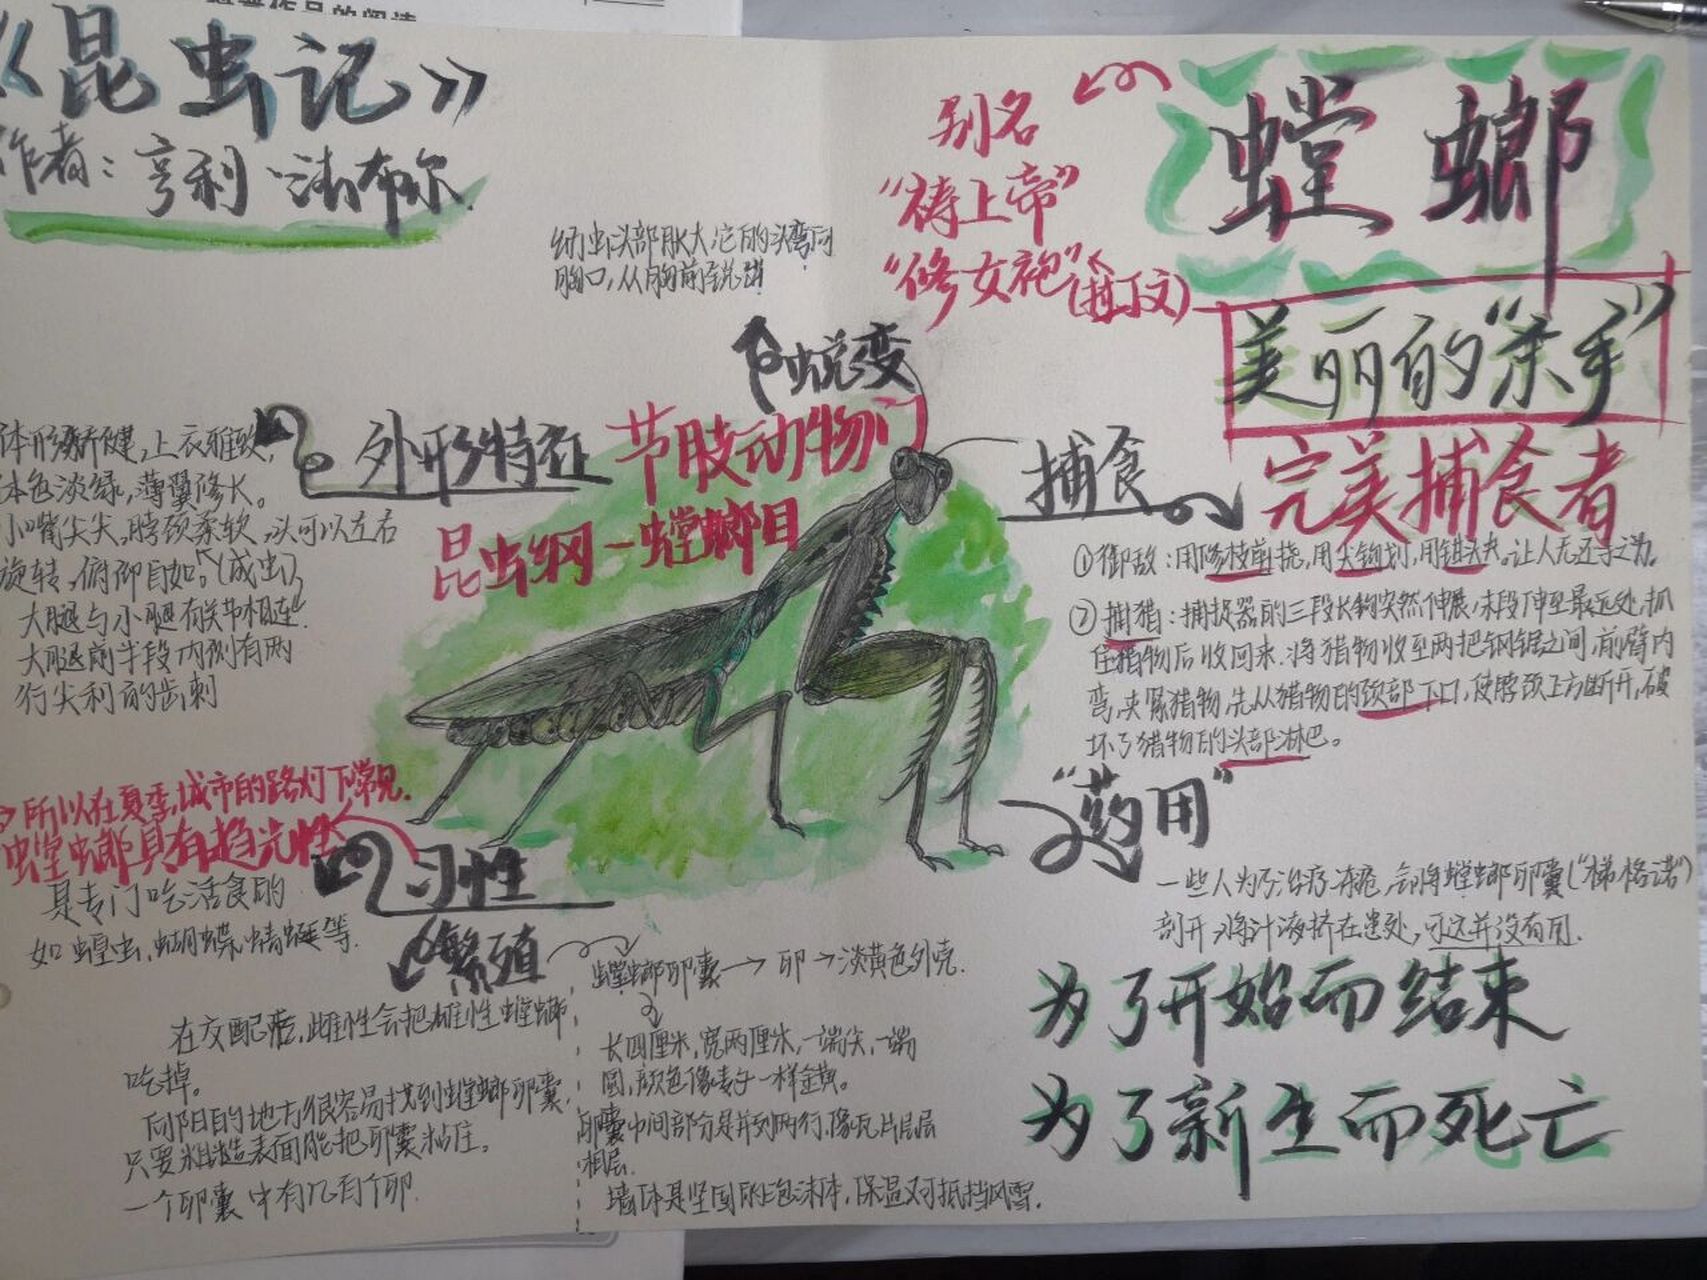 《昆虫记》
作者：亨利·法布尔
螳螂
别名
“祷上帝”
“修女袍”(拉丁文)
美丽的“杀手”
幼虫头部胀大,它的头弯向
胸口,从胸前蜕
蜕变
外形特征
体形矫健,上衣雅致,
体色淡绿,薄翼修长。
小嘴尖尖,脖颈柔软,头可以左右
旋转,俯仰自如。(成虫)
大腿与小腿有关节相连
大腿前半段内侧有两
行尖利的齿刺
节肢动物门
昆虫纲－螳螂目
捕食
完美捕食者
①御敌：用修枝剪挠,用尖钩划,用钳夹。让人无还手之力。
②捕猎：捕捉器的三段长钩突然伸展,末段伸至最远处,抓
住猎物后收回来.将猎物收至两把钢锯之间,前臂内
弯,夹紧猎物,先从猎物的颈部下口,使脖颈上方断开,破
坏了猎物的头部淋巴。
“药用”
一些人为了治疗冻疮,会将螳螂卵囊(“梯格诺”)
剖开,将汁液挤在患处,可这并没有用.
所以在夏季,城市的路灯下常见.
螳螂具有趋光性
习性
是专门吃活食的
如蝗虫,蝴蝶,蜻蜓等.
繁殖
在交配后,雌性会把雄性螳螂
吃掉。
向阳的地方很容易找到螳螂卵囊,
只要粗糙表面能把卵囊粘住。
一个卵囊中有几百个卵.
螳螂卵囊→卵→淡黄色外壳.
长四厘米,宽两厘米,一端尖,一端
圆,颜色像麦子一样金黄。
卵囊中间部分是并列两行.像瓦片层层
相层.
墙体是坚固的泡沫体,保温又可抵挡风雪.
为了开始而结束
为了新生而死亡